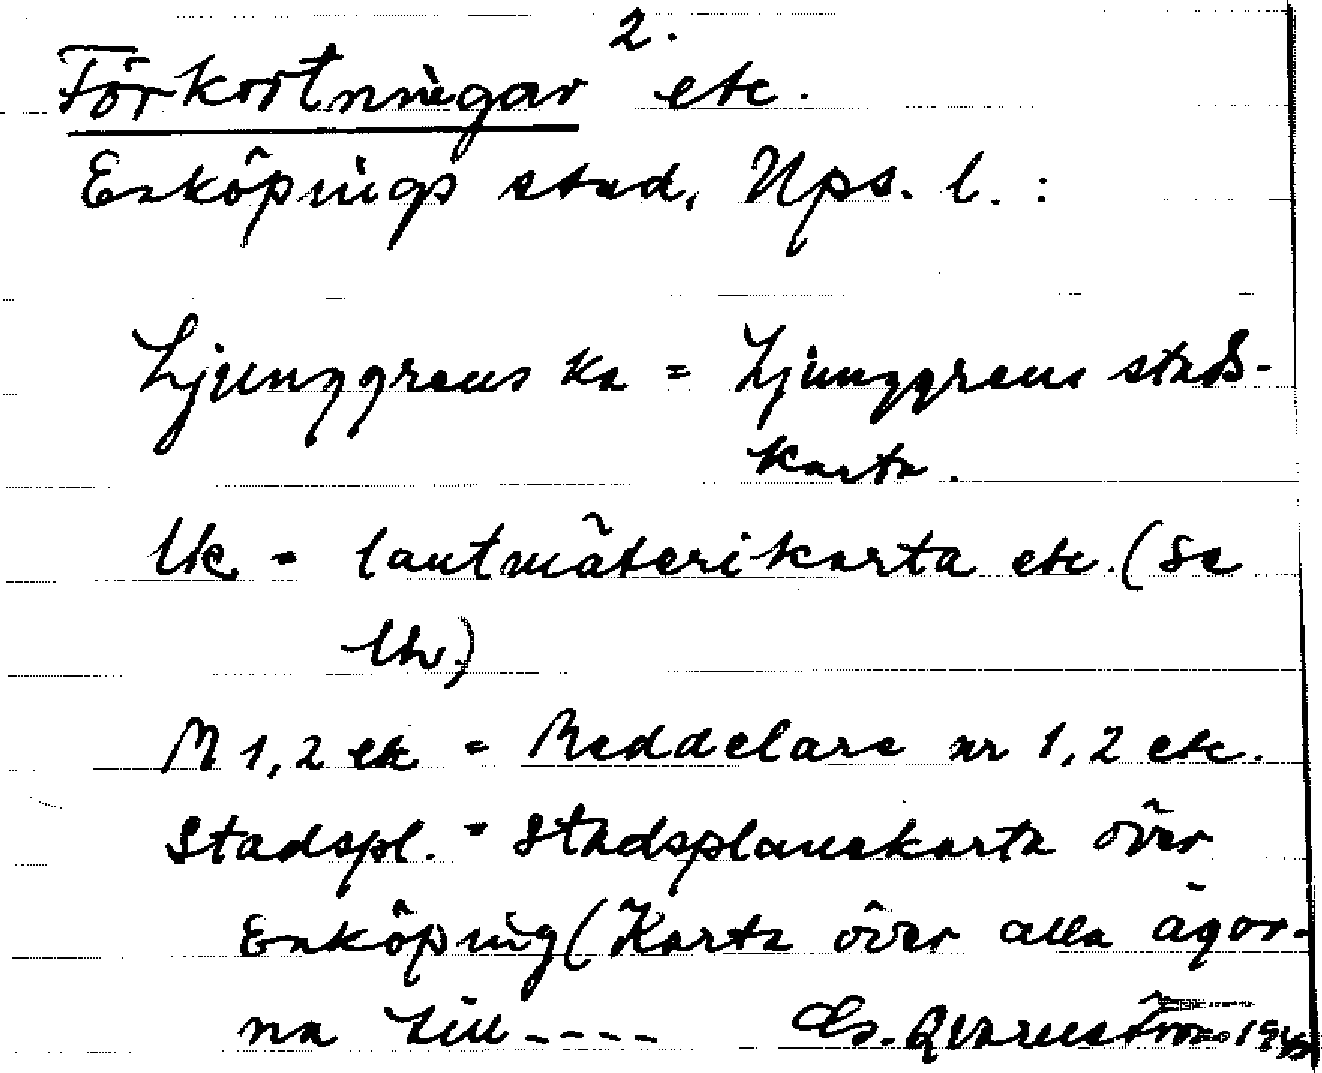 2.
Förkortningar etc.
Enköpings stad, Ups. l. :
Ljunggrens ka = Ljunggrens stads-
karta.
lk = lantmäterikarta etc. (se
lk)
M 1, 2 etc = Meddelare nr 1, 2 etc.
Stadspl. = Stadsplanekarta över
Enköping (Karta över alla ägor-
na till ---- G. Qvarnström